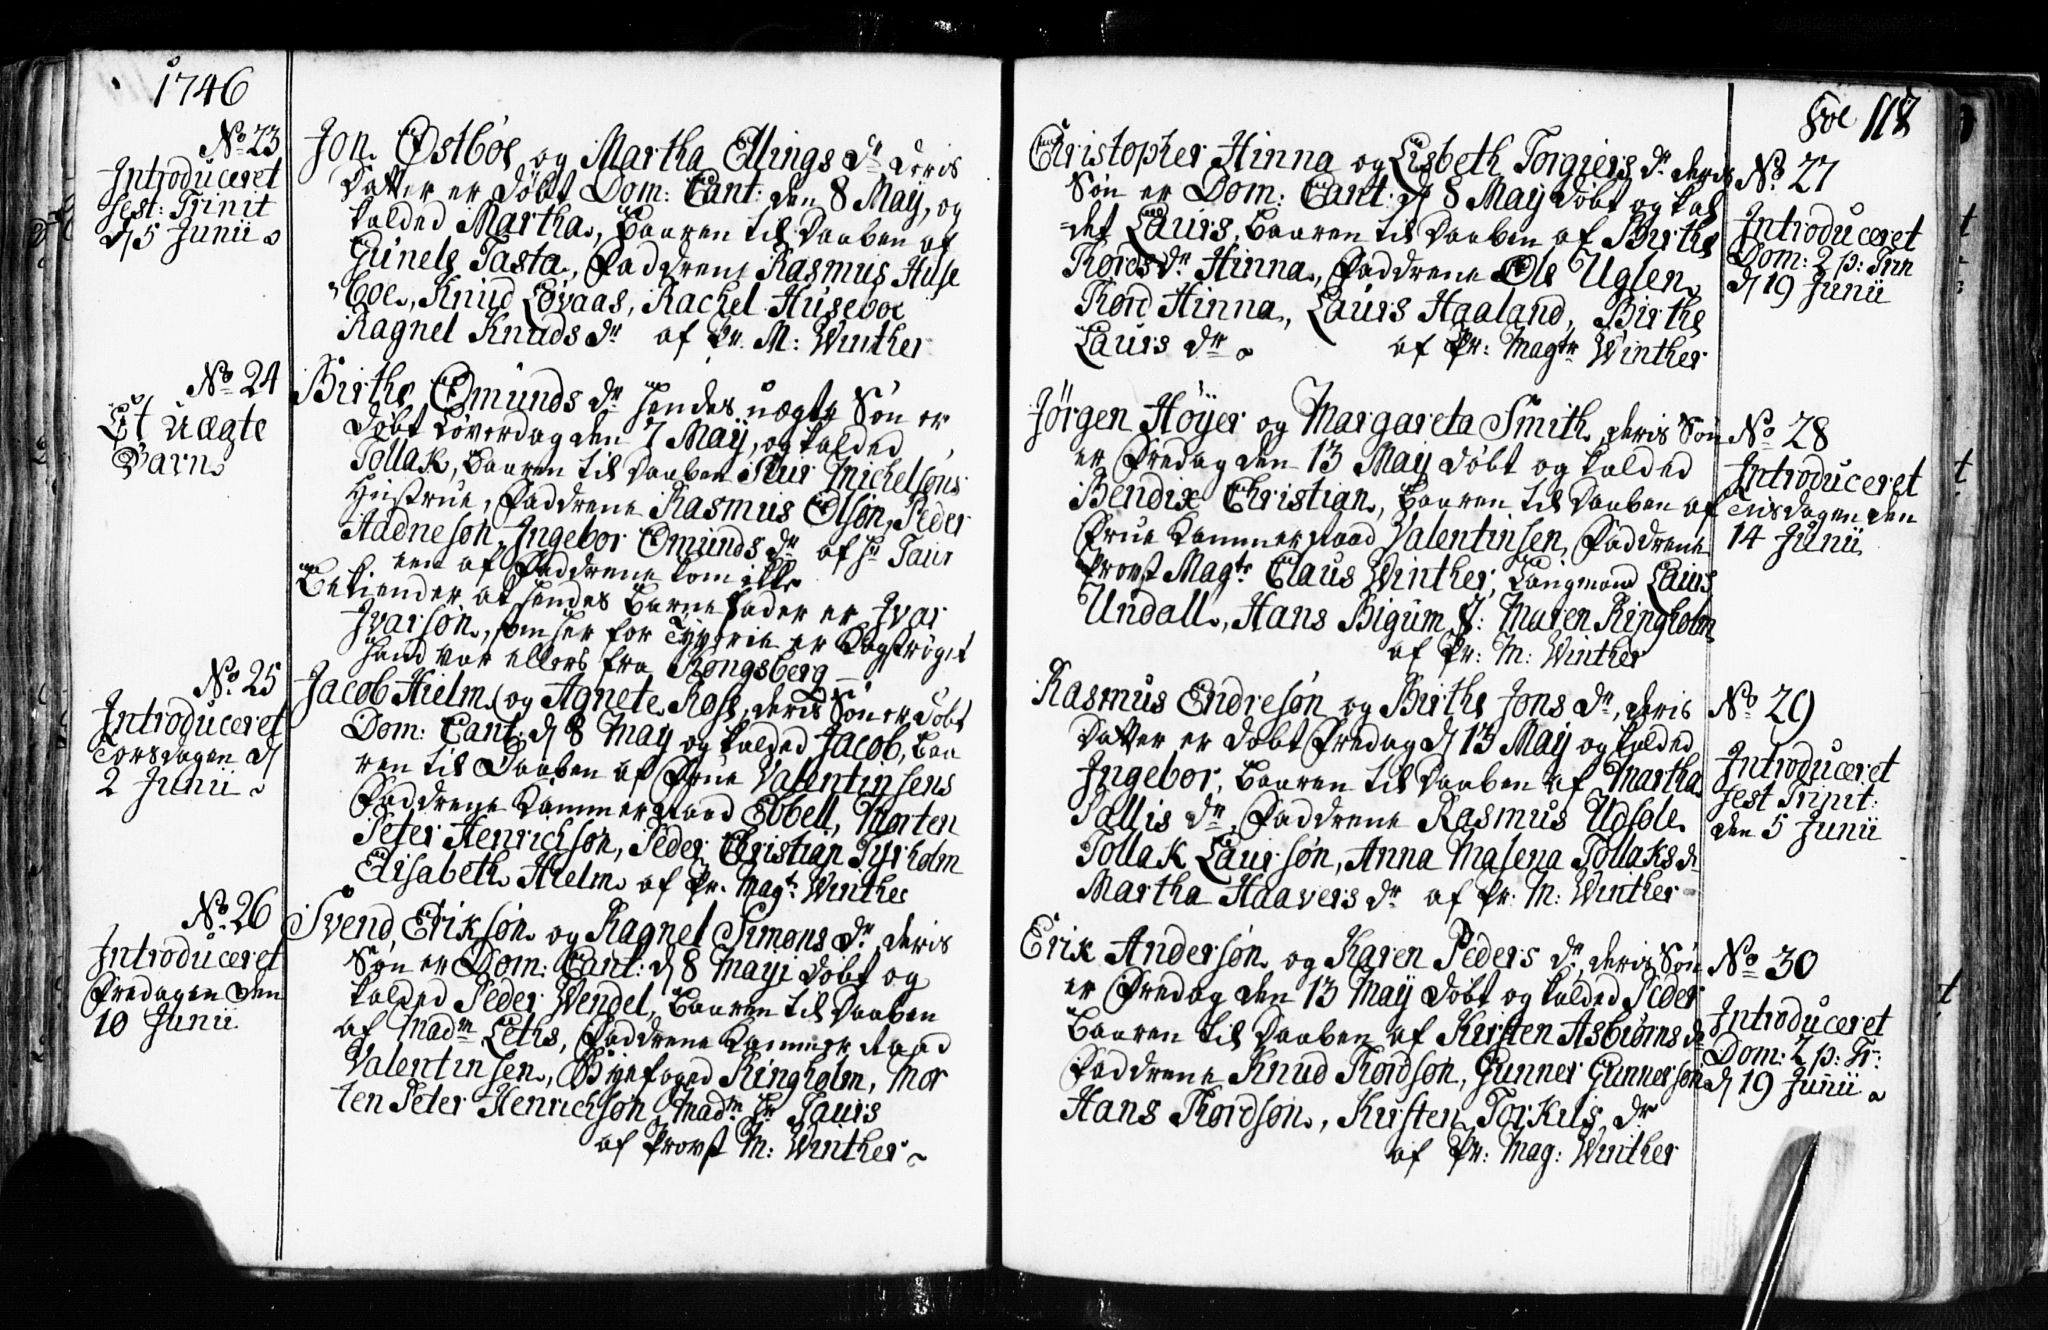 1746
No 23
Introduceret
fest: Trinit
d 5 Junii
Jon Østbøe og Martha Ellings dr deris
Datter er døbt Dom: Cant: den 8 Maij, og
kalded Martha, baaren til Daaben af
Gunele Tasta, Faddrene Rasmus Huse
boe, Knud Løvaas, Rachel Huseboe
Ragnel Knuds dr af Pr. M: Winther
No 24
Et Uægte
Barn
Birthe Omunds dr hendes uægte Søn er
døbt Løverdag den 7 Maij, og kalded
Tollak, baaren til Daaben Siur Michelsøns
Hustrue, Faddrene Rasmus Olsøn, Peder
Aadnesøn, Ingebor Omunds dr af hr Taur
een af Faddrene kom ikke
Bekiender at hendes Barnefader er Ivar
Ivarsøn, som her for Tyverie er Kagstrøget
hand var ellers fra Kongsberg
No 25
Introduceret
Torsdagen d
2 Junii
Jacob Hielm og Agnete Rose, deris Søn er døbt
Dom: Cant: d 8 May og kalded Jacob, baa
ren til Daaben af Frue Valentinsens
Faddrene Kammerraad Ebbell, Morten
Peter Henrichsøn, Peder Christian Tyrholm
Elisabeth Hielm af Pr. Magr Winther
No 26
Introduceret
Fredagen den
10 Junii
Svend Eriksøn og Ragnel Simons dr deris
Søn er Dom: Cant: d 8 Maji døbt og
kalded Peder Wendel, baaren til Daaben
af Madm Leths, Faddrene Kammerraad
Valentinsen, Byefoged Ringholm, Mor
ten Peter Henrichsøn Madm hr Taurs
af Provst M: Winther
Fol 117
Christopher Hinna og Lisbeth Torgiers dr deris
Søn er Dom: Cant: d 8 May døbt og kal
det Laurs, baaren til Daaben af Birthe
Tordsdr Hinna, Faddrene Ole Uglen
Tord Hinna, Laurs Haaland, Birthe
Laurs dr af Pr: Magtr Winther
No 27
Introduceret
Dom: 2 p: Trin
d 19 Junii
Jørgen Høyer og Margareta Smith, deris Søn
er Fredag den 13 Maij døbt og kalded
Bendix Christian, baaren til Daaben af
Frue Kammerraad Valentinsen, Faddrene
Provst Magtr Claus Winther, Laugmand Laurs
Undall, Hans Bigum, J: Maren Ringholm
af Pr: M: Winther
No 28
Introduceret
Tiisdagen den
14 Junii
Rasmus Endresøn og Birthe Jons dr, deris
Datter er døbt Fredag d 13 Maij og kalded
Ingebor, baaren til Daaben af Martha
Pallis dr, Faddrene Rasmus Udsole
Tollak Laursøn, Anna Malena Tollaks d
Martha Haavers dr af Pr: M: Winther
No 29
Introduceret
fest Trinit:
den 5 Junii
Erik Andersøn og Karen Peders dr, deris Søn
er Fredag den 13 Maij døbt og kalded Peder
baaren til Daaben af Kirsten Asbiørns d
Faddrene Knud Tordsøn, Gunner Gunnersøn
Hans Tordsøn, Kirsten Torkils dr
af Pr: Mag: Winther
No 30
Introduceret
Dom: 2 p: Tr:
d 19 Junii